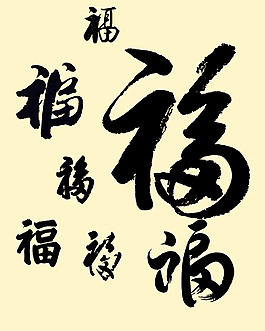 福
福
福
福
福
福
福